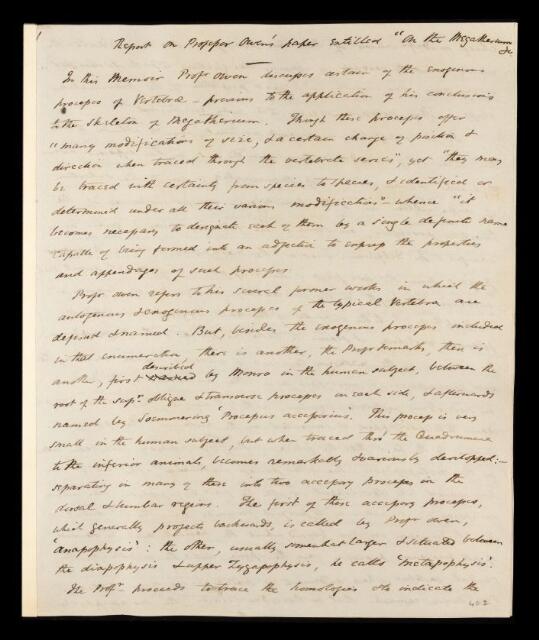 1
Report on Professor Owen's paper entitled "On the Megatherium &c
In this Memoir Profr Owen discusses certain of the exogenous
processes of Vertebræ - previous to the application of his conclusions
to the skeleton of Megatherium. Though these processes offer
"many modifications of size, & a certain change of position &
direction when traced through the vertebrate series", yet "they may
be traced with certainty from species to species, & identified or
determined under all their various modifications" whence "it
becomes necessary to designate each of them by a single definite name
capable of being formed into an adjective to express the properties
and appendages of such processes
Profr Owen refers to his several former works in which the
autogenous & exogenous processes of the typical Vertebra are
defined & named. But, besides the exogenous processes included
in that enumeration, there is another, the Profr remarks, there is
another, first described by Monro in the human subject, between the
root of the supr oblique & transverse processes on each side, & afterwards
named by Soemmering 'Processus accessorius'. This process is very
small in the human subject, but when traced thro' the Quadrumana
to the inferior animals, becomes remarkably & variously developed :-
separating in many of these into two accessory processes in the
dorsal & lumbar regions. The first of these accessory processes,
which generally projects backwards, is called by Profr Owen,
'anapophysis' : the other, usually somewhat larger & situated between
the diapophysis & upper Zygapophysis, he calls 'metapophysis'.
The Profr proceeds to trace the homologies & to indicate the
402